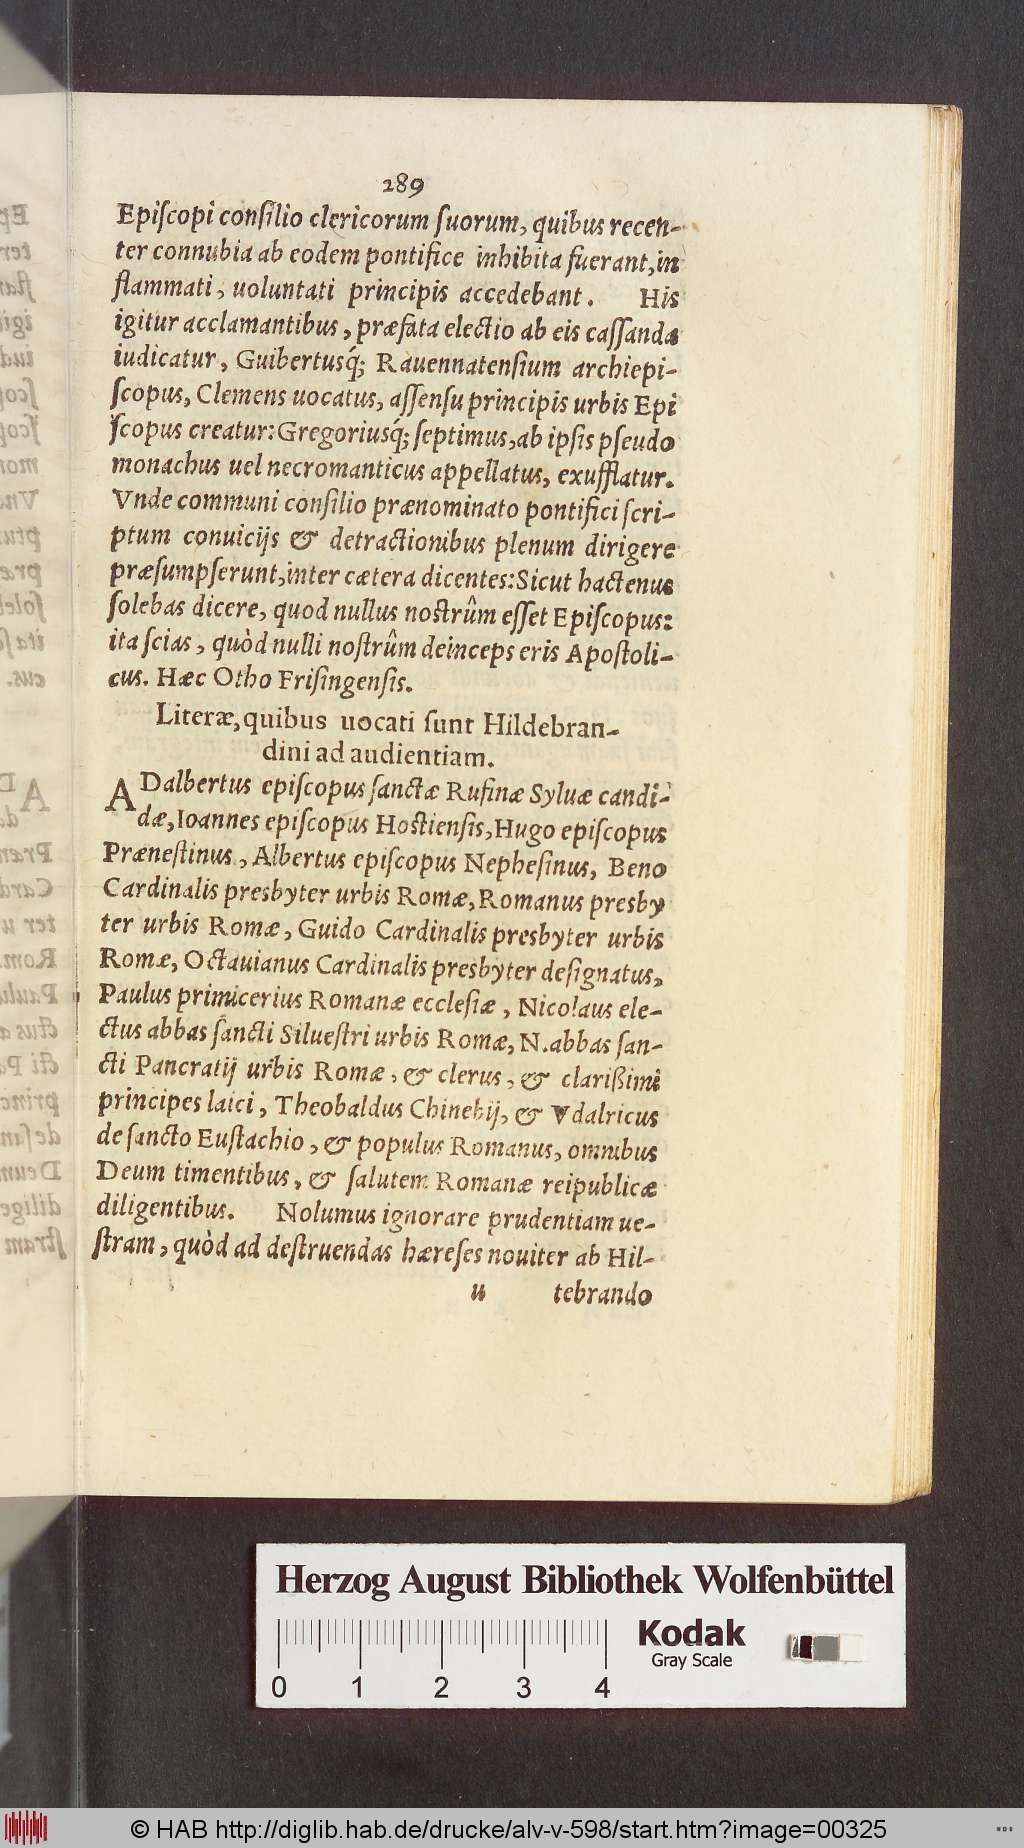 289
Epiſcopi conſilio clericorum ſuorum, quibus recen-
ter connubia ab eodem pontifice inhibita fuerant, in
flammati, uoluntati principis accedebant. His
igitur acclamantibus, præfata electio ab eis caſſanda
iudicatur, Guibertusq́; Rauennatenſium archiepi-
ſcopus, Clemens uocatus, aſſenſu principis urbis Epi
ſcopus creatur: Gregoriusq́; ſeptimus, ab ipſis pſeudo
monachus uel necromanticus appellatus, exufflatur.
Vnde communi conſilio prænominato pontifici ſcri-
ptum conuicijs & detractionibus plenum dirigere
præſumpſerunt, inter cætera dicentes: Sicut hactenus
ſolebas dicere, quod nullus noſtrûm eſſet Epiſcopus:
ita ſcias, quòd nulli noſtrûm deinceps eris Apoſtoli-
cus. Hæc Otho Friſingenſis.
Literæ, quibus uocati ſunt Hildebran-
dini ad audientiam.
ADalbertus epiſcopus ſanctæ Rufinæ Syluæ candi-
dæ, Ioannes epiſcopus Hoſtienſis, Hugo epiſcopus
Præneſtinus, Albertus epiſcopus Nepheſinus, Beno
Cardinalis presbyter urbis Romæ, Romanus presby
ter urbis Romæ, Guido Cardinalis presbyter urbis
Romæ, Octauianus Cardinalis presbyter deſignatus,
Paulus primicerius Romanæ eccleſiæ, Nicolaus ele-
ctus abbas ſancti Silueſtri urbis Romæ, N. abbas ſan-
cti Pancratij urbis Romæ, & clerus, & clarißimi
principes laici, Theobaldus Chinehij, & Vdalricus
de ſancto Euſtachio, & populus Romanus, omnibus
Deum timentibus, & ſalutem Romanæ reipublicæ
diligentibus. Nolumus ignorare prudentiam ue-
ſtram, quòd ad deſtruendas hæreſes nouiter ab Hil-
u tebrando
Herzog August Bibliothek Wolfenbüttel
Kodak
Gray Scale
0 1 2 3 4
© HAB http://diglib.hab.de/drucke/alv-v-598/start.htm?image=00325